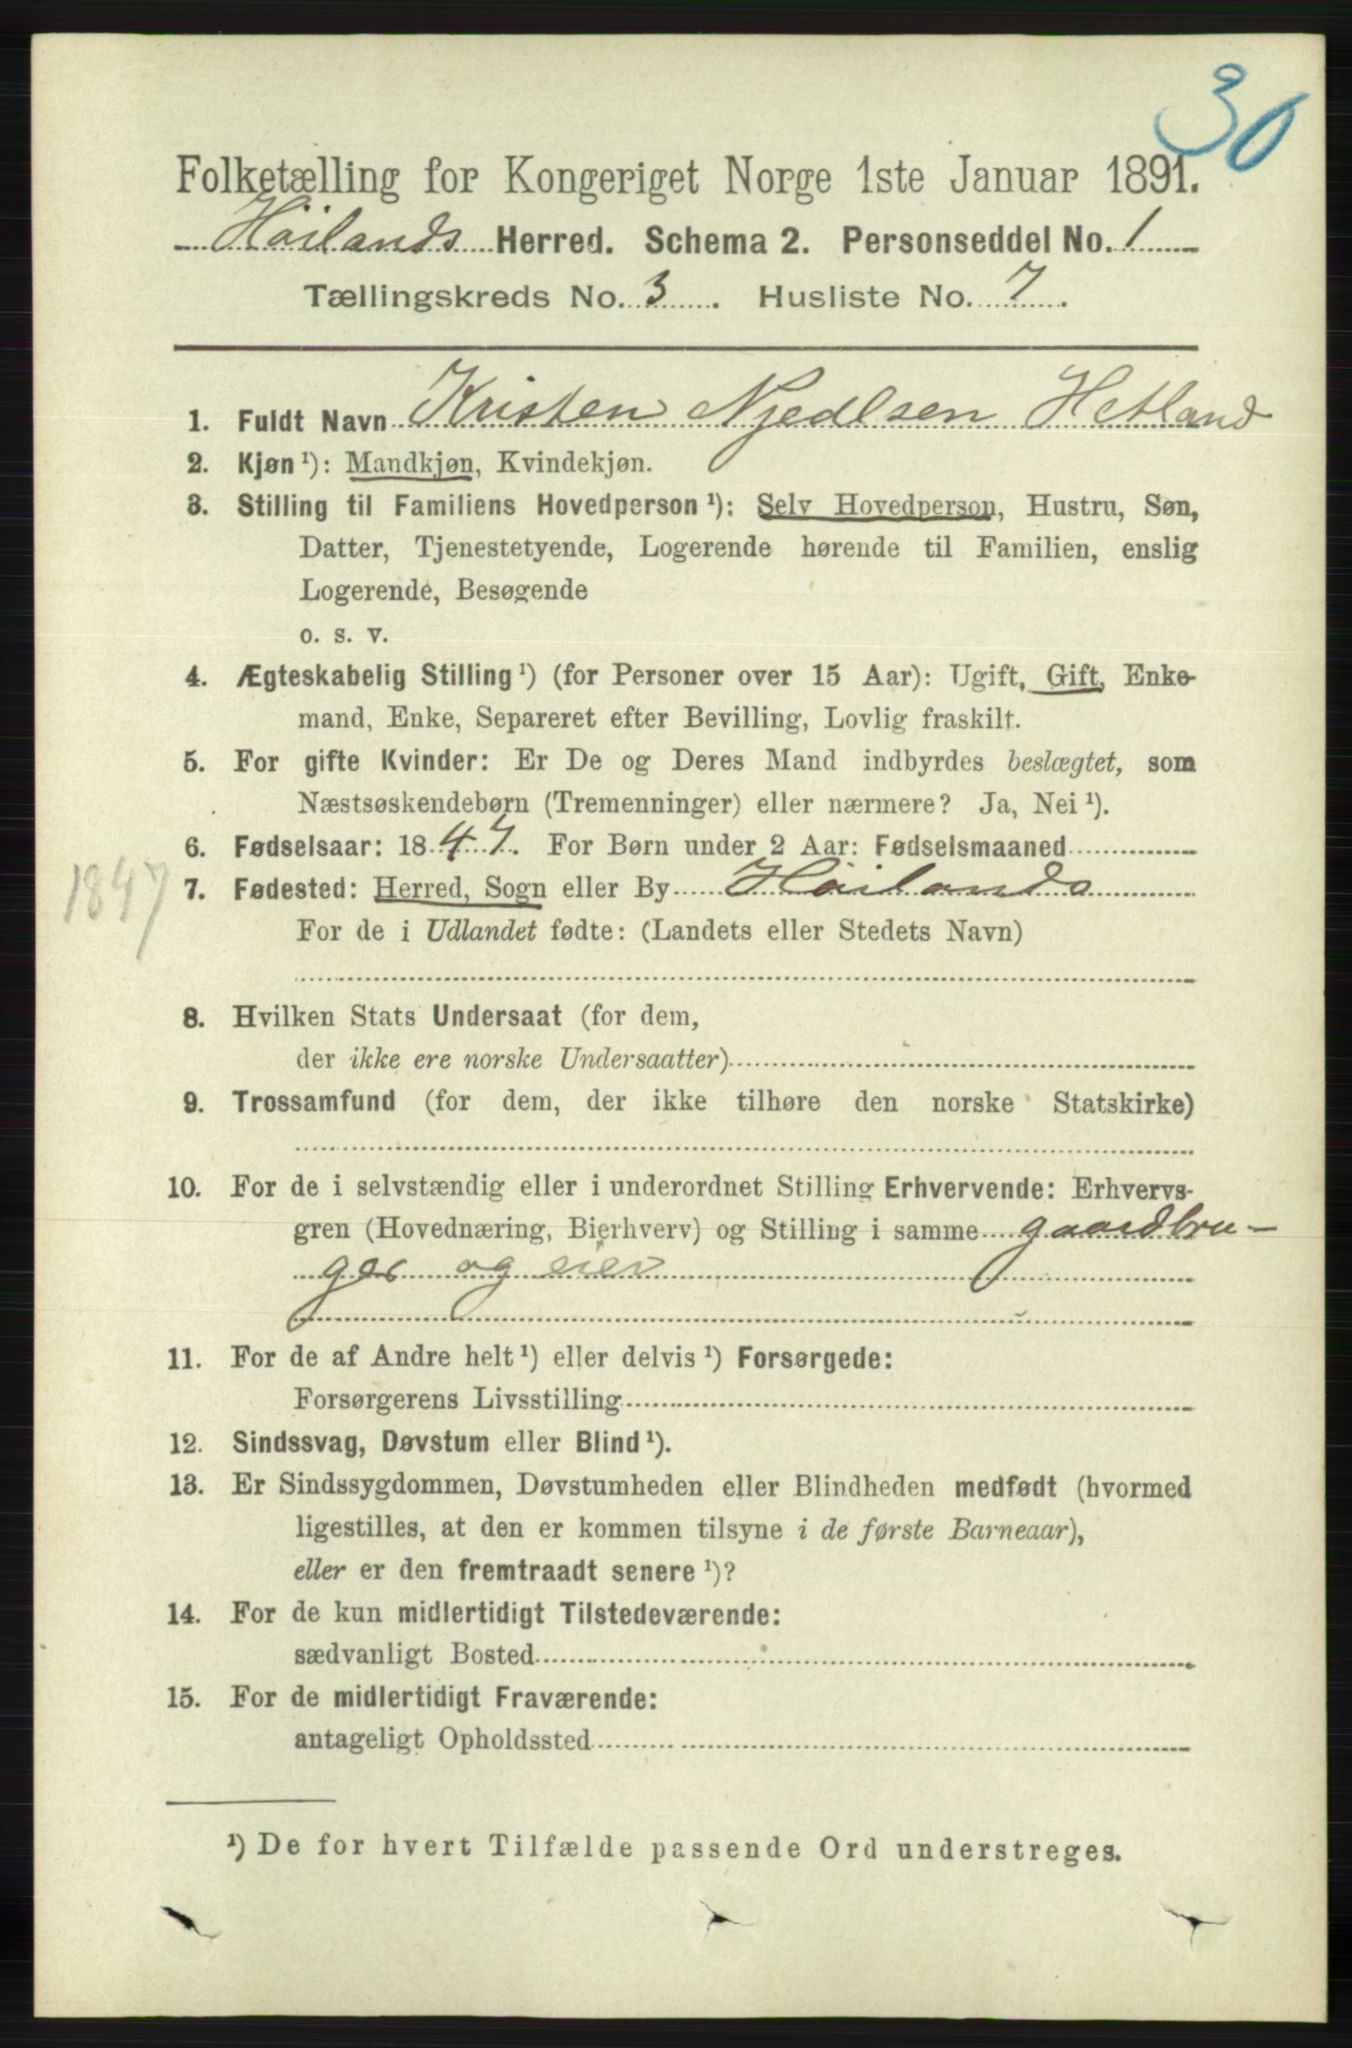 30
Folketælling for Kongeriget Norge 1ste Januar 1891.
Höilands Herred. Schema 2. Personseddel No. 1
Tællingskreds No. 3. Husliste No. 7.
1. Fuldt Navn Kristen Njedlsen Hetland
2. Kjøn¹): Mandkjøn, Kvindekjøn.
3. Stilling til Familiens Hovedperson¹): Selv Hovedperson, Hustru, Søn,
Datter, Tjenestetyende, Logerende hørende til Familien, enslig
Logerende, Besøgende
o. s. v.
4. Ægteskabelig Stilling¹) (for Personer over 15 Aar): Ugift, Gift, Enke-
mand, Enke, Separeret efter Bevilling, Lovlig fraskilt.
5. For gifte Kvinder: Er De og Deres Mand indbyrdes beslægtet, som
Næstsøskendebørn (Tremenninger) eller nærmere? Ja, Nei¹).
6. Fødselsaar: 1847. For Børn under 2 Aar: Fødselsmaaned
1847
7. Fødested: Herred, Sogn eller By Höilands
For de i Udlandet fødte: (Landets eller Stedets Navn)
8. Hvilken Stats Undersaat (for dem,
der ikke ere norske Undersaatter)
9. Trossamfund (for dem, der ikke tilhøre den norske Statskirke)
10. For de i selvstændig eller i underordnet Stilling Erhvervende: Erhvervs-
gren (Hovednæring, Bierhverv) og Stilling i samme gaardbru-
ger og eier
11. For de af Andre helt¹) eller delvis¹) Forsørgede:
Forsørgerens Livsstilling
12. Sindssvag, Døvstum eller Blind¹).
13. Er Sindssygdommen, Døvstumheden eller Blindheden medfødt (hvormed
ligestilles, at den er kommen tilsyne i de første Barneaar),
eller er den fremtraadt senere¹)?
14. For de kun midlertidigt Tilstedeværende:
sædvanligt Bosted
15. For de midlertidigt Fraværende:
antageligt Opholdssted
¹) De for hvert Tilfælde passende Ord understreges.